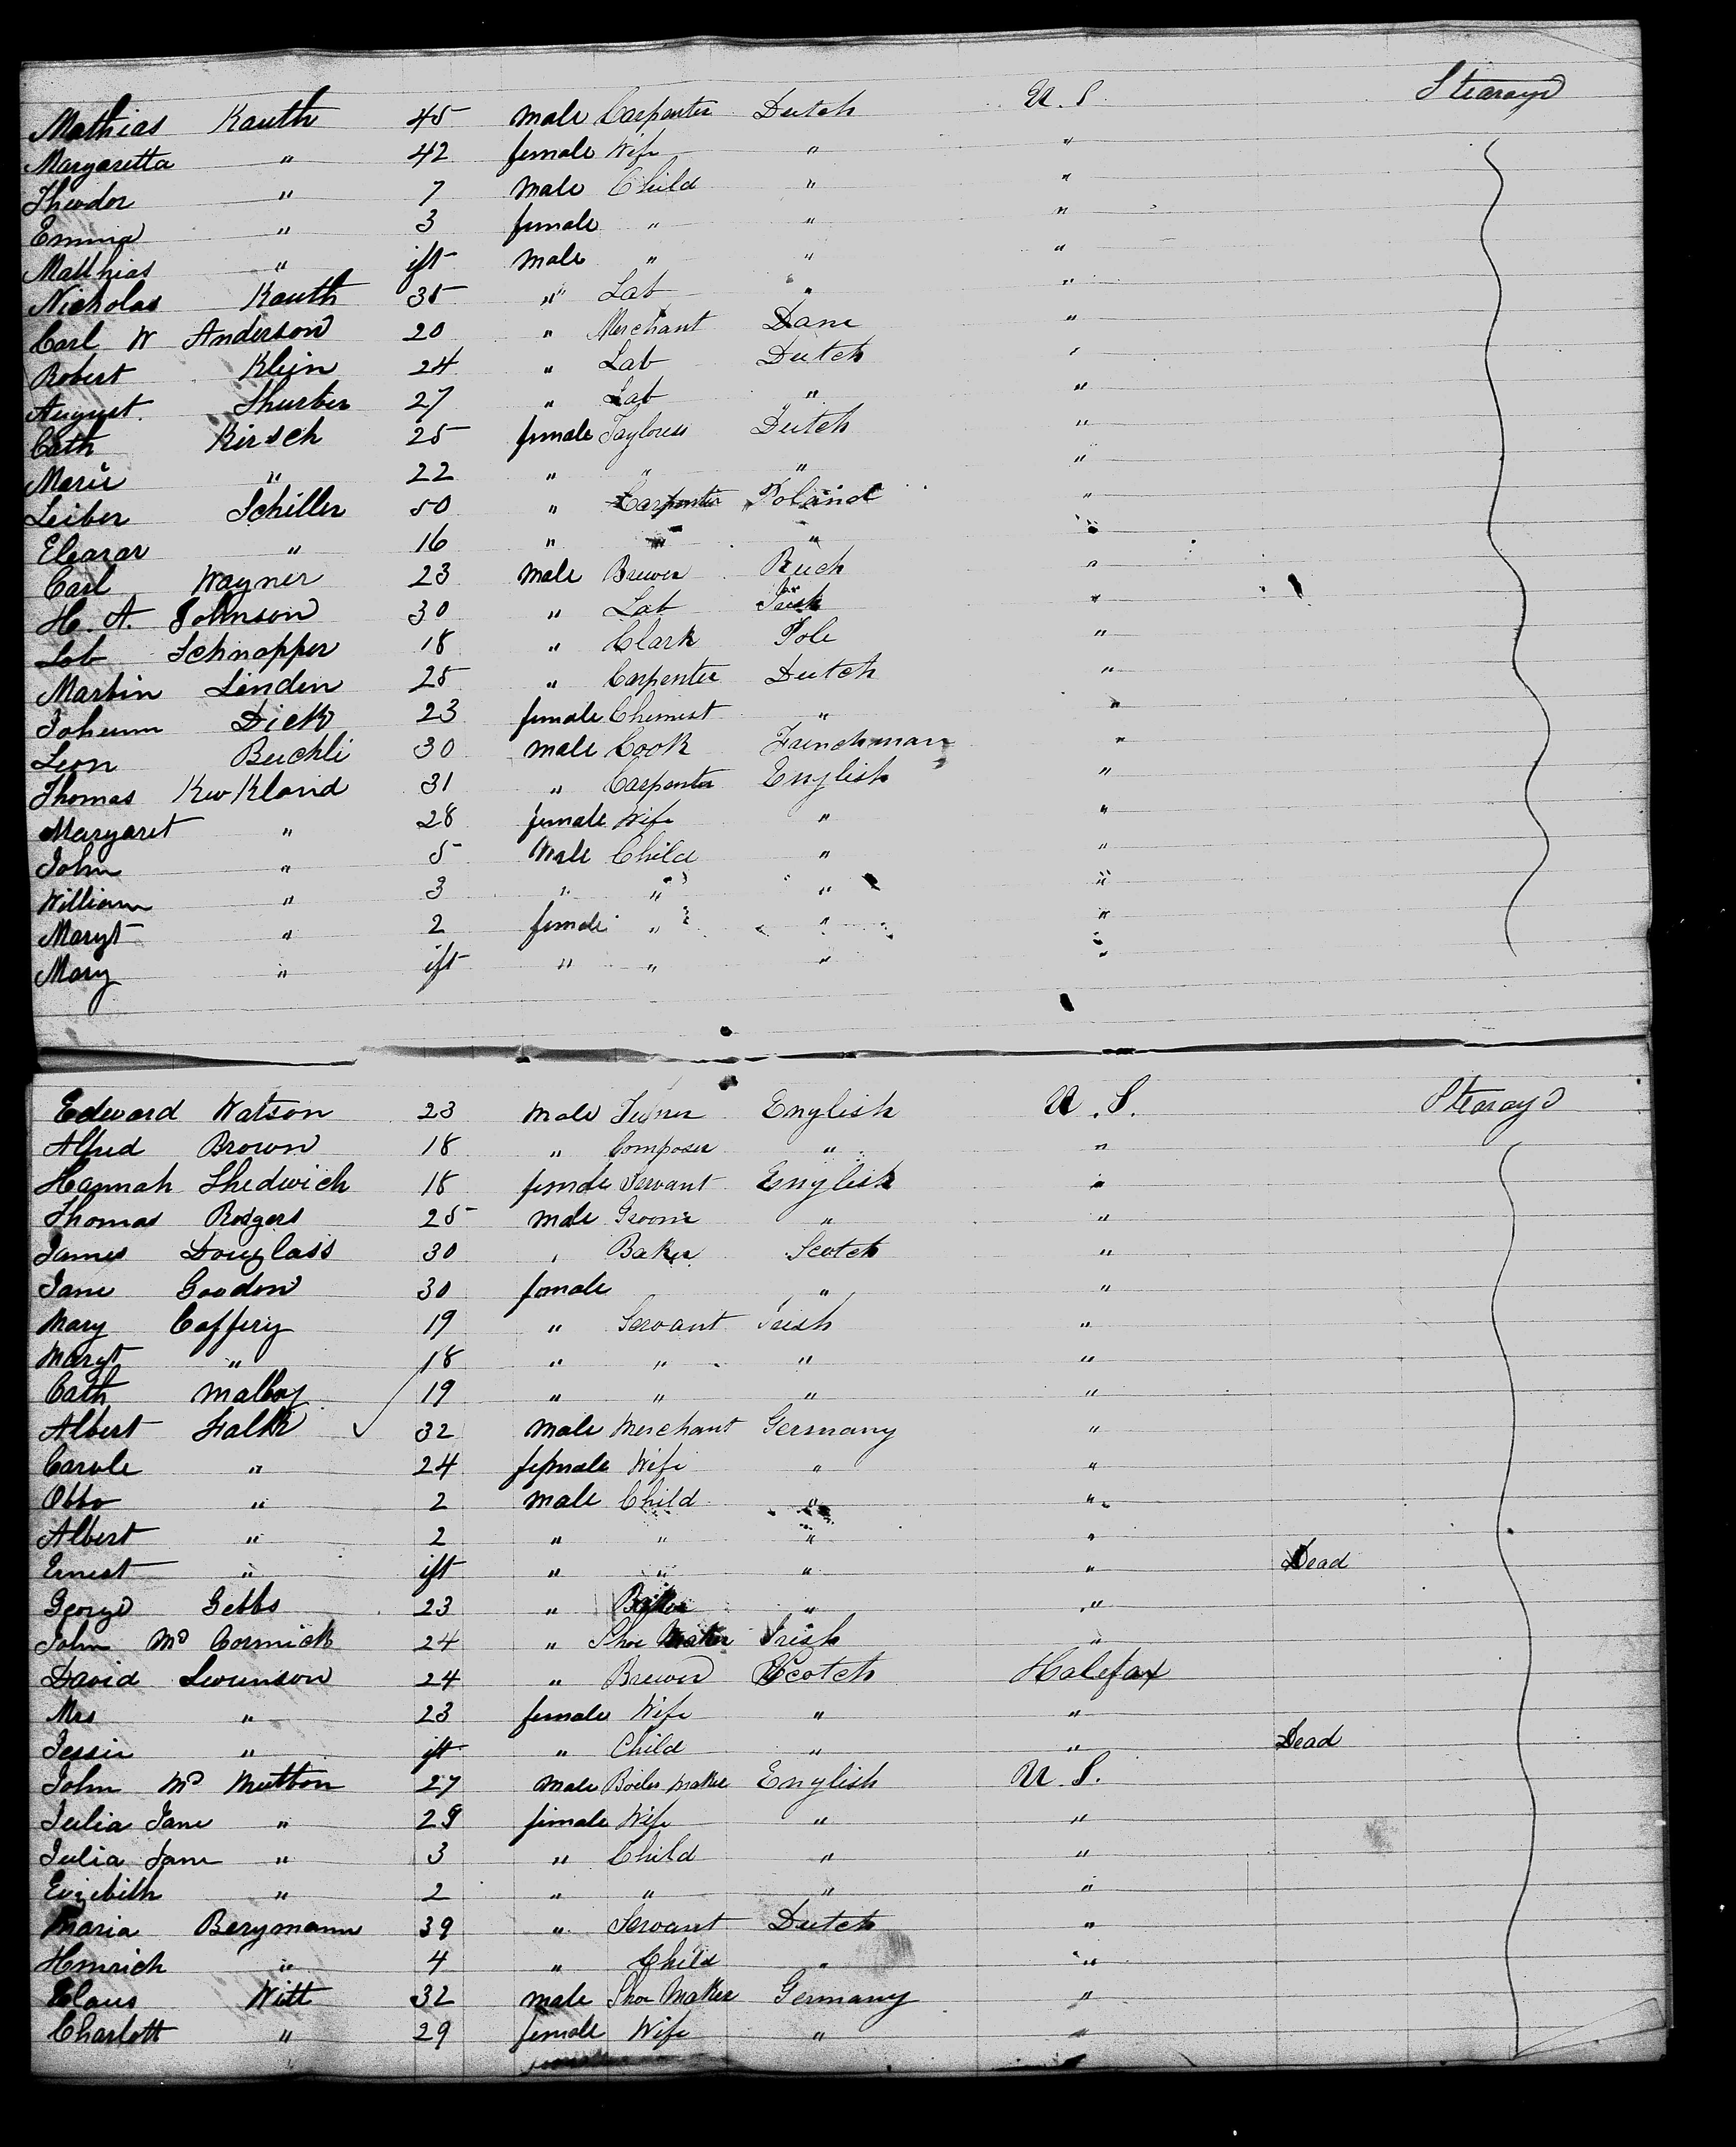 Mathias Kauth 45 male Carpenter Dutch U.S. Steerage
Margaretta " 42 female Wife " "
Theodor " 7 male Child " "
Emma " 3 female " " "
Matthias " ift male " " "
Nicholas Kauth 35 " Lab " "
Carl W Anderson 20 " Merchant Dane "
Robert Klein 24 " Lab Dutch "
August Thurber 27 " Lab " "
Cath Kirsch 25 female Tayloress Dutch "
Marie " 22 " " " "
Leiber Schiller 50 " Carpenter Poland "
Eleazar " 16 " " " "
Carl Wagner 23 male Brewer "
H. A. Johnson 30 " Lab Irish "
Lob Schnapper 18 " Clark Pole "
Martin Linden 25 " Carpenter Dutch "
Johenn Dick 23 female Chemist " "
Leon Buchli 30 male Cook Frenchman "
Thomas 31 " Carpenter English "
Margaret " 28 female Wife " "
John " 5 male Child " "
William " 3 " " " "
Maryt " 2 female " " "
Mary " ift " " " "
Edward Watson 23 male English U.S. Steerage
Alfred Brown 18 " Composer " "
Hannah Shedwich 18 female Servant English "
Thomas Rodgers 25 male Groom " "
James Douglass 30 " Baker Scotch "
Jane Goodon 30 female " "
Mary Caffery 19 " Servant Irish "
Maryt " 18 " " " "
Cath Malloy 19 " " " "
Albert Falk 32 male Merchant Germany "
Carole " 24 female Wife " "
Otto " 2 male Child " "
Albert " 2 " " " "
Ernest " ift " " " " Dead
George Gebbs 23 " Baker " "
John Mc Cormick 24 " Shoe Maker Irish "
David Swunson 24 " Brewer Scotch Halefax
Mrs " 23 female Wife " "
Jessie " ift " Child " " Dead
John Mc Mutton 27 male Boiler maker English U.S.
Julia Jane " 28 female Wife " "
Julia Jane " 3 " Child " "
Evizibith " 2 " " " "
Maria Bergmann 39 " Servant Dutch "
Hinrich " 4 " Child " "
Claus Witt 32 male Shoe Maker Germany "
Charlott " 29 female Wife " "